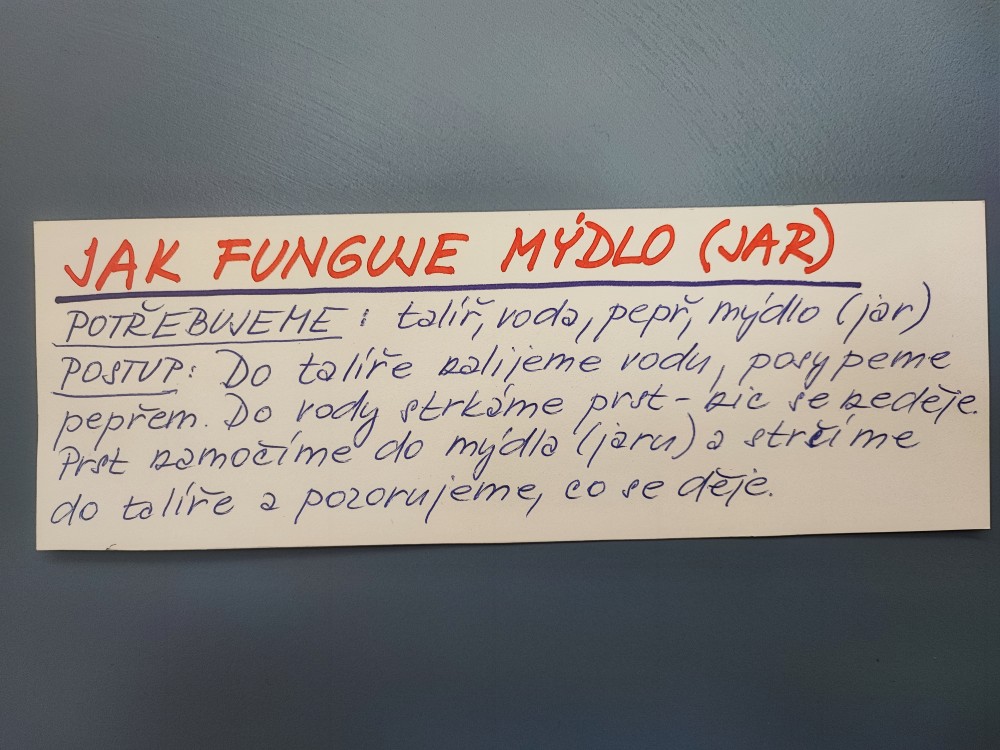 JAK FUNGUJE MÝDLO (JAR)
POTŘEBUJEME: talíř, voda, pepř, mýdlo (jar)
POSTUP: Do talíře nalijeme vodu, posypeme
pepřem. Do vody strkáme prst - nic se neděje.
Prst namočíme do mýdla (jaru) a strčíme
do talíře a pozorujeme, co se děje.